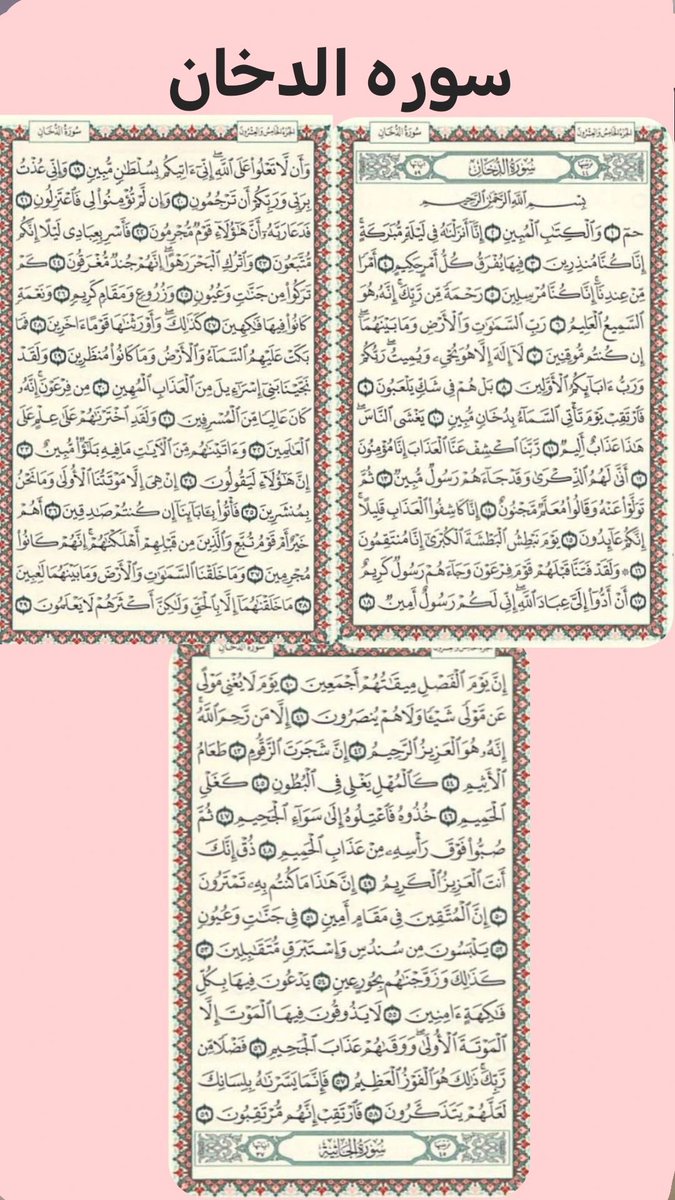 سوره الدخان
سورة الدخان
الجزء الخامس والعشرون
سُورَةُ الدُّخَانِ
بِسْمِ اللَّهِ الرَّحْمَٰنِ الرَّحِيمِ
حمٓ ١ وَٱلْكِتَٰبِ ٱلْمُبِينِ ٢ إِنَّآ أَنزَلْنَٰهُ فِي لَيْلَةٍ مُّبَٰرَكَةٍۚ
إِنَّا كُنَّا مُنذِرِينَ ٣ فِيهَا يُفْرَقُ كُلُّ أَمْرٍ حَكِيمٍ ٤ أَمْرًا
مِّنْ عِندِنَآۚ إِنَّا كُنَّا مُرْسِلِينَ ٥ رَحْمَةً مِّن رَّبِّكَۚ إِنَّهُۥ هُوَ
ٱلسَّمِيعُ ٱلْعَلِيمُ ٦ رَبِّ ٱلسَّمَٰوَٰتِ وَٱلْأَرْضِ وَمَا بَيْنَهُمَآۖ
إِن كُنتُم مُّوقِنِينَ ٧ لَآ إِلَٰهَ إِلَّا هُوَ يُحْيِۦ وَيُمِيتُۖ رَبُّكُمْ
وَرَبُّ ءَابَآئِكُمُ ٱلْأَوَّلِينَ ٨ بَلْ هُمْ فِي شَكٍّ يَلْعَبُونَ ٩
فَٱرْتَقِبْ يَوْمَ تَأْتِي ٱلسَّمَآءُ بِدُخَانٍ مُّبِينٍ ١٠ يَغْشَى ٱلنَّاسَۖ
هَٰذَا عَذَابٌ أَلِيمٌ ١١ رَّبَّنَا ٱكْشِفْ عَنَّا ٱلْعَذَابَ إِنَّا مُؤْمِنُونَ
١٢ أَنَّىٰ لَهُمُ ٱلذِّكْرَىٰ وَقَدْ جَآءَهُمْ رَسُولٌ مُّبِينٌ ١٣ ثُمَّ
تَوَلَّوْا۟ عَنْهُ وَقَالُوا۟ مُعَلَّمٌ مَّجْنُونٌ ١٤ إِنَّا كَاشِفُوا۟ ٱلْعَذَابِ قَلِيلًاۚ
إِنَّكُمْ عَآئِدُونَ ١٥ يَوْمَ نَبْطِشُ ٱلْبَطْشَةَ ٱلْكُبْرَىٰٓ إِنَّا مُنتَقِمُونَ
١٦ ۞ وَلَقَدْ فَتَنَّا قَبْلَهُمْ قَوْمَ فِرْعَوْنَ وَجَآءَهُمْ رَسُولٌ كَرِيمٌ
١٧ أَنْ أَدُّوٓا۟ إِلَيَّ عِبَادَ ٱللَّهِۖ إِنِّي لَكُمْ رَسُولٌ أَمِينٌ ١٨
سورة الدخان
الجزء الخامس والعشرون
وَأَن لَّا تَعْلُوا۟ عَلَى ٱللَّهِۖ إِنِّيٓ ءَاتِيكُم بِسُلْطَٰنٍ مُّبِينٍ ١٩ وَإِنِّي عُذْتُ
بِرَبِّي وَرَبِّكُمْ أَن تَرْجُمُونِ ٢٠ وَإِن لَّمْ تُؤْمِنُوا۟ لِي فَٱعْتَزِلُونِ ٢١
فَدَعَا رَبَّهُۥٓ أَنَّ هَٰٓؤُلَآءِ قَوْمٌ مُّجْرِمُونَ ٢٢ فَأَسْرِ بِعِبَادِي لَيْلًا إِنَّكُم
مُّتَّبَعُونَ ٢٣ وَٱتْرُكِ ٱلْبَحْرَ رَهْوًاۖ إِنَّهُمْ جُندٌ مُّغْرَقُونَ ٢٤ كَمْ
تَرَكُوا۟ مِن جَنَّٰتٍ وَعُيُونٍ ٢٥ وَزُرُوعٍ وَمَقَامٍ كَرِيمٍ ٢٦ وَنَعْمَةٍ
كَانُوا۟ فِيهَا فَٰكِهِينَ ٢٧ كَذَٰلِكَۖ وَأَوْرَثْنَٰهَا قَوْمًا ءَاخَرِينَ ٢٨ فَمَا
بَكَتْ عَلَيْهِمُ ٱلسَّمَآءُ وَٱلْأَرْضُ وَمَا كَانُوا۟ مُنظَرِينَ ٢٩ وَلَقَدْ
نَجَّيْنَا بَنِيٓ إِسْرَٰٓءِيلَ مِنَ ٱلْعَذَابِ ٱلْمُهِينِ ٣٠ مِن فِرْعَوْنَۚ إِنَّهُۥ
كَانَ عَالِيًا مِّنَ ٱلْمُسْرِفِينَ ٣١ وَلَقَدِ ٱخْتَرْنَٰهُمْ عَلَىٰ عِلْمٍ عَلَى
ٱلْعَٰلَمِينَ ٣٢ وَءَاتَيْنَٰهُم مِّنَ ٱلْءَايَٰتِ مَا فِيهِ بَلَٰٓؤٌا۟ مُّبِينٌ ٣٣
إِنَّ هَٰٓؤُلَآءِ لَيَقُولُونَ ٣٤ إِنْ هِيَ إِلَّا مَوْتَتُنَا ٱلْأُولَىٰ وَمَا نَحْنُ
بِمُنشَرِينَ ٣٥ فَأْتُوا۟ بِـَٔابَآئِنَآ إِن كُنتُمْ صَٰدِقِينَ ٣٦ أَهُمْ
خَيْرٌ أَمْ قَوْمُ تُبَّعٍ وَٱلَّذِينَ مِن قَبْلِهِمْ أَهْلَكْنَٰهُمْۖ إِنَّهُمْ كَانُوا۟
مُجْرِمِينَ ٣٧ وَمَا خَلَقْنَا ٱلسَّمَٰوَٰتِ وَٱلْأَرْضَ وَمَا بَيْنَهُمَا لَٰعِبِينَ
٣٨ مَا خَلَقْنَٰهُمَآ إِلَّا بِٱلْحَقِّ وَلَٰكِنَّ أَكْثَرَهُمْ لَا يَعْلَمُونَ ٣٩
سورة الدخان
إِنَّ يَوْمَ ٱلْفَصْلِ مِيقَٰتُهُمْ أَجْمَعِينَ ٤٠ يَوْمَ لَا يُغْنِي مَوْلًى
عَن مَّوْلًى شَيْـًٔا وَلَا هُمْ يُنصَرُونَ ٤١ إِلَّا مَن رَّحِمَ ٱللَّهُۚ
إِنَّهُۥ هُوَ ٱلْعَزِيزُ ٱلرَّحِيمُ ٤٢ إِنَّ شَجَرَتَ ٱلزَّقُّومِ ٤٣ طَعَامُ
ٱلْأَثِيمِ ٤٤ كَٱلْمُهْلِ يَغْلِي فِي ٱلْبُطُونِ ٤٥ كَغَلْيِ
ٱلْحَمِيمِ ٤٦ خُذُوهُ فَٱعْتِلُوهُ إِلَىٰ سَوَآءِ ٱلْجَحِيمِ ٤٧ ثُمَّ
صُبُّوا۟ فَوْقَ رَأْسِهِۦ مِنْ عَذَابِ ٱلْحَمِيمِ ٤٨ ذُقْ إِنَّكَ
أَنتَ ٱلْعَزِيزُ ٱلْكَرِيمُ ٤٩ إِنَّ هَٰذَا مَا كُنتُم بِهِۦ تَمْتَرُونَ
٥٠ إِنَّ ٱلْمُتَّقِينَ فِي مَقَامٍ أَمِينٍ ٥١ فِي جَنَّٰتٍ وَعُيُونٍ
٥٢ يَلْبَسُونَ مِن سُندُسٍ وَإِسْتَبْرَقٍ مُّتَقَٰبِلِينَ ٥٣
كَذَٰلِكَ وَزَوَّجْنَٰهُم بِحُورٍ عِينٍ ٥٤ يَدْعُونَ فِيهَا بِكُلِّ
فَٰكِهَةٍ ءَامِنِينَ ٥٥ لَا يَذُوقُونَ فِيهَا ٱلْمَوْتَ إِلَّا
ٱلْمَوْتَةَ ٱلْأُولَىٰۖ وَوَقَىٰهُمْ عَذَابَ ٱلْجَحِيمِ ٥٦ فَضْلًا مِّن
رَّبِّكَۚ ذَٰلِكَ هُوَ ٱلْفَوْزُ ٱلْعَظِيمُ ٥٧ فَإِنَّمَا يَسَّرْنَٰهُ بِلِسَانِكَ
لَعَلَّهُمْ يَتَذَكَّرُونَ ٥٨ فَٱرْتَقِبْ إِنَّهُم مُّرْتَقِبُونَ ٥٩
سُورَةُ الْجَاثِيَةِ